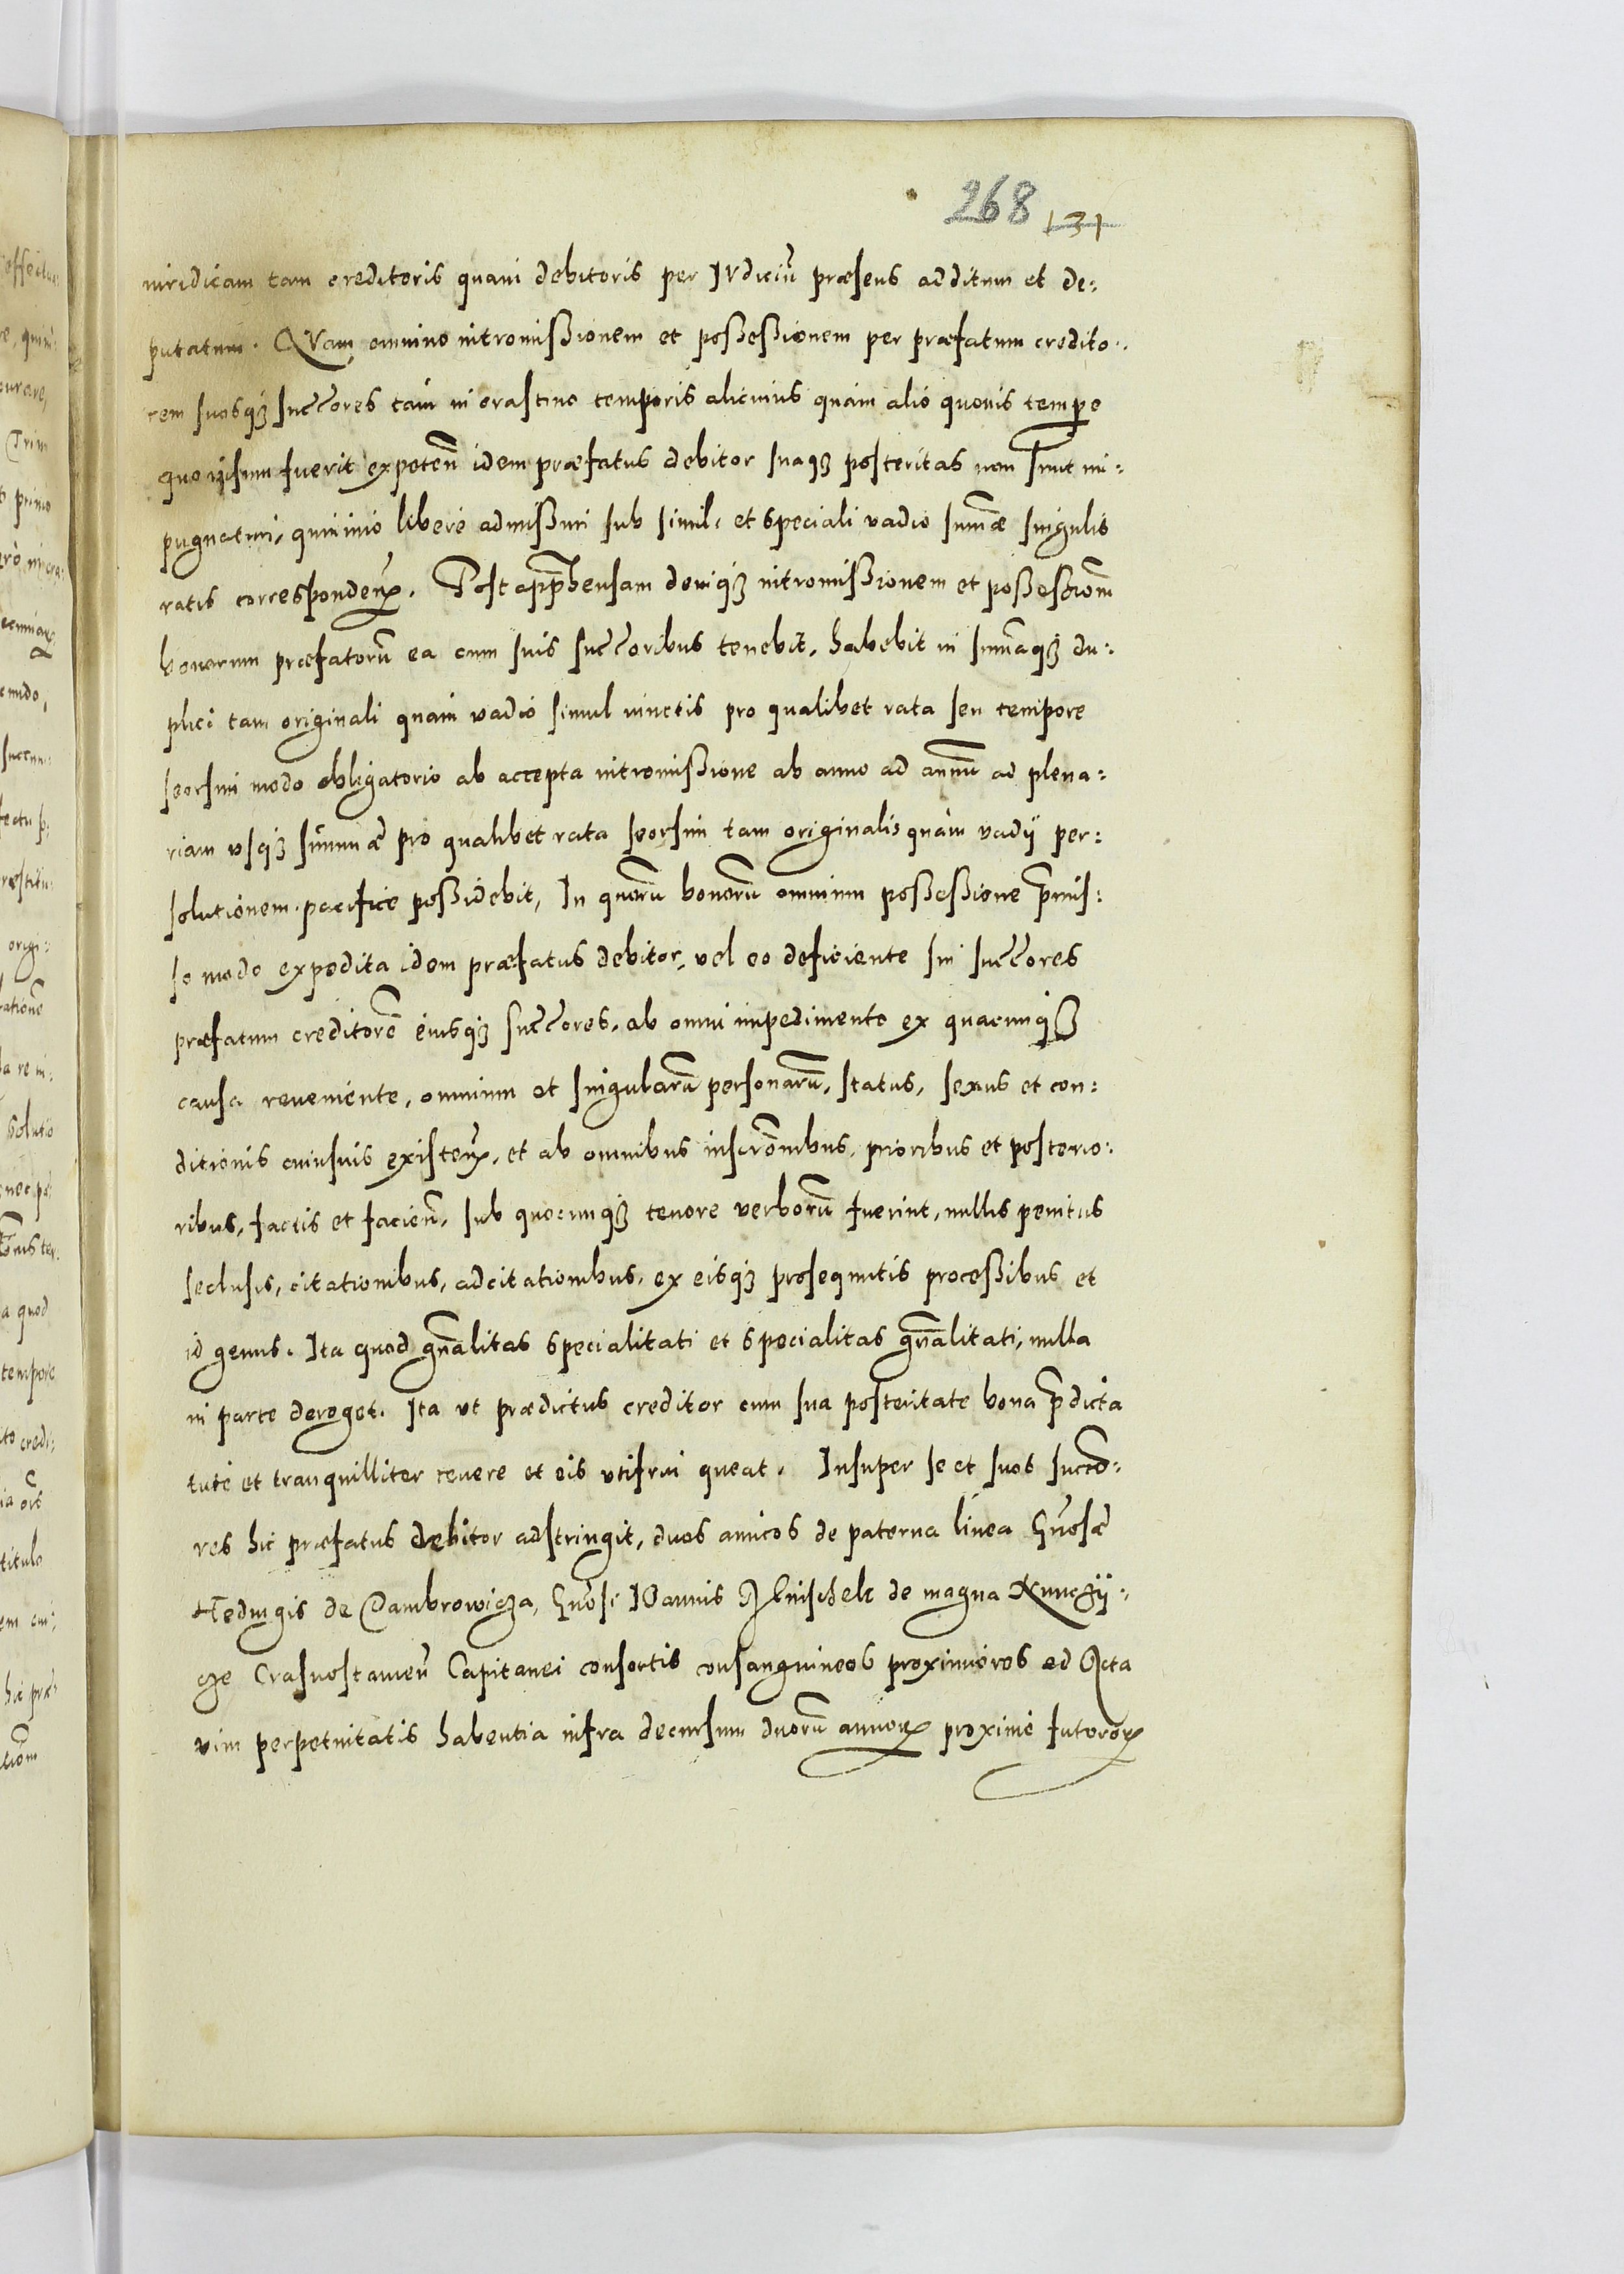 268 131
iuridicam tam creditoris quam debitoris per IVdiciũ præsens additum et de:
putatum. QVam omnino intromißionem et poßeßionem per præfatum credito:
rem suosq3 succores tam in crastino temporis alicuius quàm alio quouis tempe
quo ijsum fuerit expeteñ idem præfatus debitor suaq3 posteritas non sunt im:
pugnaturi, quinimo liberè admißuri sub simili et speciali vadio sum̃æ singulis
ratis correspondeñ. Post apprhensam deniq3 intromißionem et poßeßiom̃
bonorum præfatorũ ea cum suis succoribus tenebit, habebit in sum̃aq3 du:
plici tam originali quam vadio simul iunctis pro qualibet rata seu tempore
seorsim modo obligatorio ab accepta intromißione ab anno ad annũ ad plena:
riam vsq3 summæ pro qualibet rata seorsim tam originalis quàm vadij per:
solutionem pacificè poßidebit, In quorũ bonorũ omnium poßeßione pr̃mis:
so modo expedita idem præfatus debitor, vel eo deficiente sui succores
præfatum creditorẽ eiusq3 succores, ab omni impedimento ex quacunq3
causa reueniente, omnium et singularũ personarũ, status, sexus et con:
ditionis cuiusuis existeñ, et ab omnibus inscrõnibus, prioribus et posterio:
ribus, factis et facieñ, sub quocunq3 tenore verborũ fuerint, nullis penitus
seclusis, citationibus, adcitationibus, ex eisq3 prosequutis proceßibus et
id genus. Ita quod gñalitas specialitati et specialitas gñalitati, nulla
in parte deroget. Ita vt prædictus creditor cum sua posteritate bona pr̃dicta
tutè et tranquilliter tenere et eis vtifrui queat. Insuper se et suos succo:
res hic præfatus debitor adstringit, duos amicos de paterna linea Gñosæ
Heduigis de Dambrowicza, Gñosi IOannis de magna
cze Crasnostauieñ Capitanei consortis consanguineos proximiores ad Acta
vim perpetuitatis habentia infra decursum duorũ annorꝝ proximè futurorꝝ